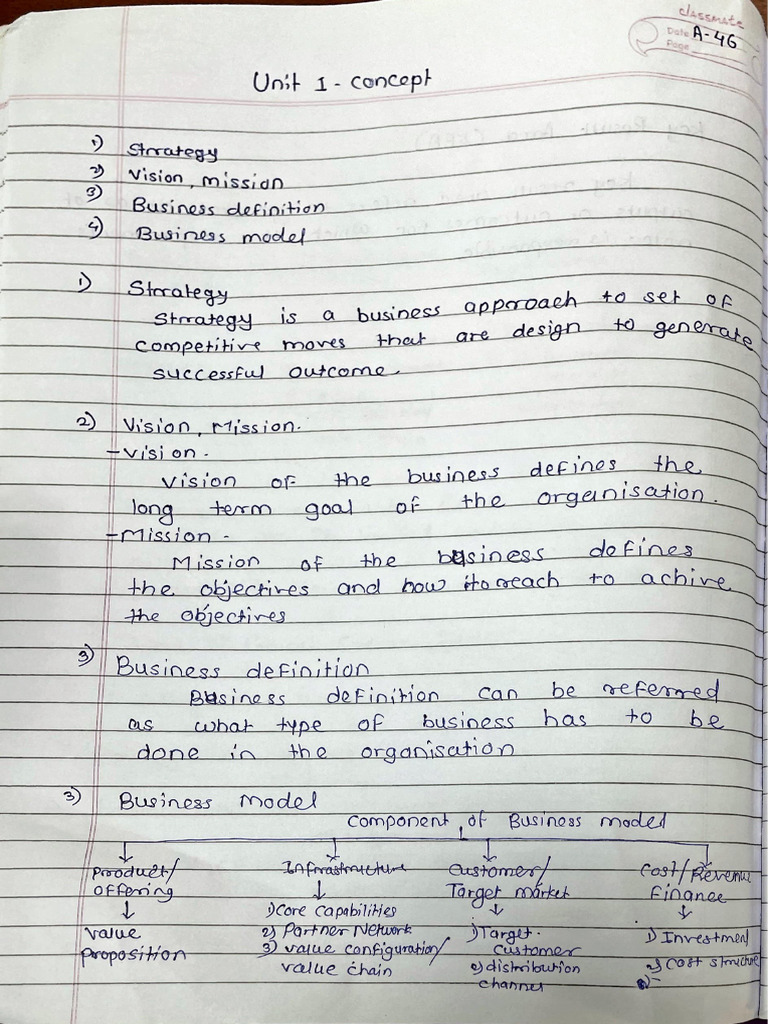 classmate
Date A-46
Page
Unit 1 - concept
1) Strategy
2) Vision, mission
3) Business definition
4) Business model
1) Strategy
Strategy is a business approach to set of
competitive moves that are design to generate
successful outcome.
2) Vision, Mission.
- Vision.
Vision of the business defines the
long term goal of the organisation.
- Mission -
Mission of the business defines
the objectives and how to reach to achive
the objectives
3) Business definition
Business definition can be referred
as what type of business has to be
done in the organisation
3) Business model
Component of Business model
Product/ Infrastructure Customer/ Cost/Revenue
Offering Target market finance
Value 1) Core Capabilities 1) Target 1) Investment
proposition 2) Partner Network customer 2) Cost structure
3) value configuration/ 2) distribution
value chain channel